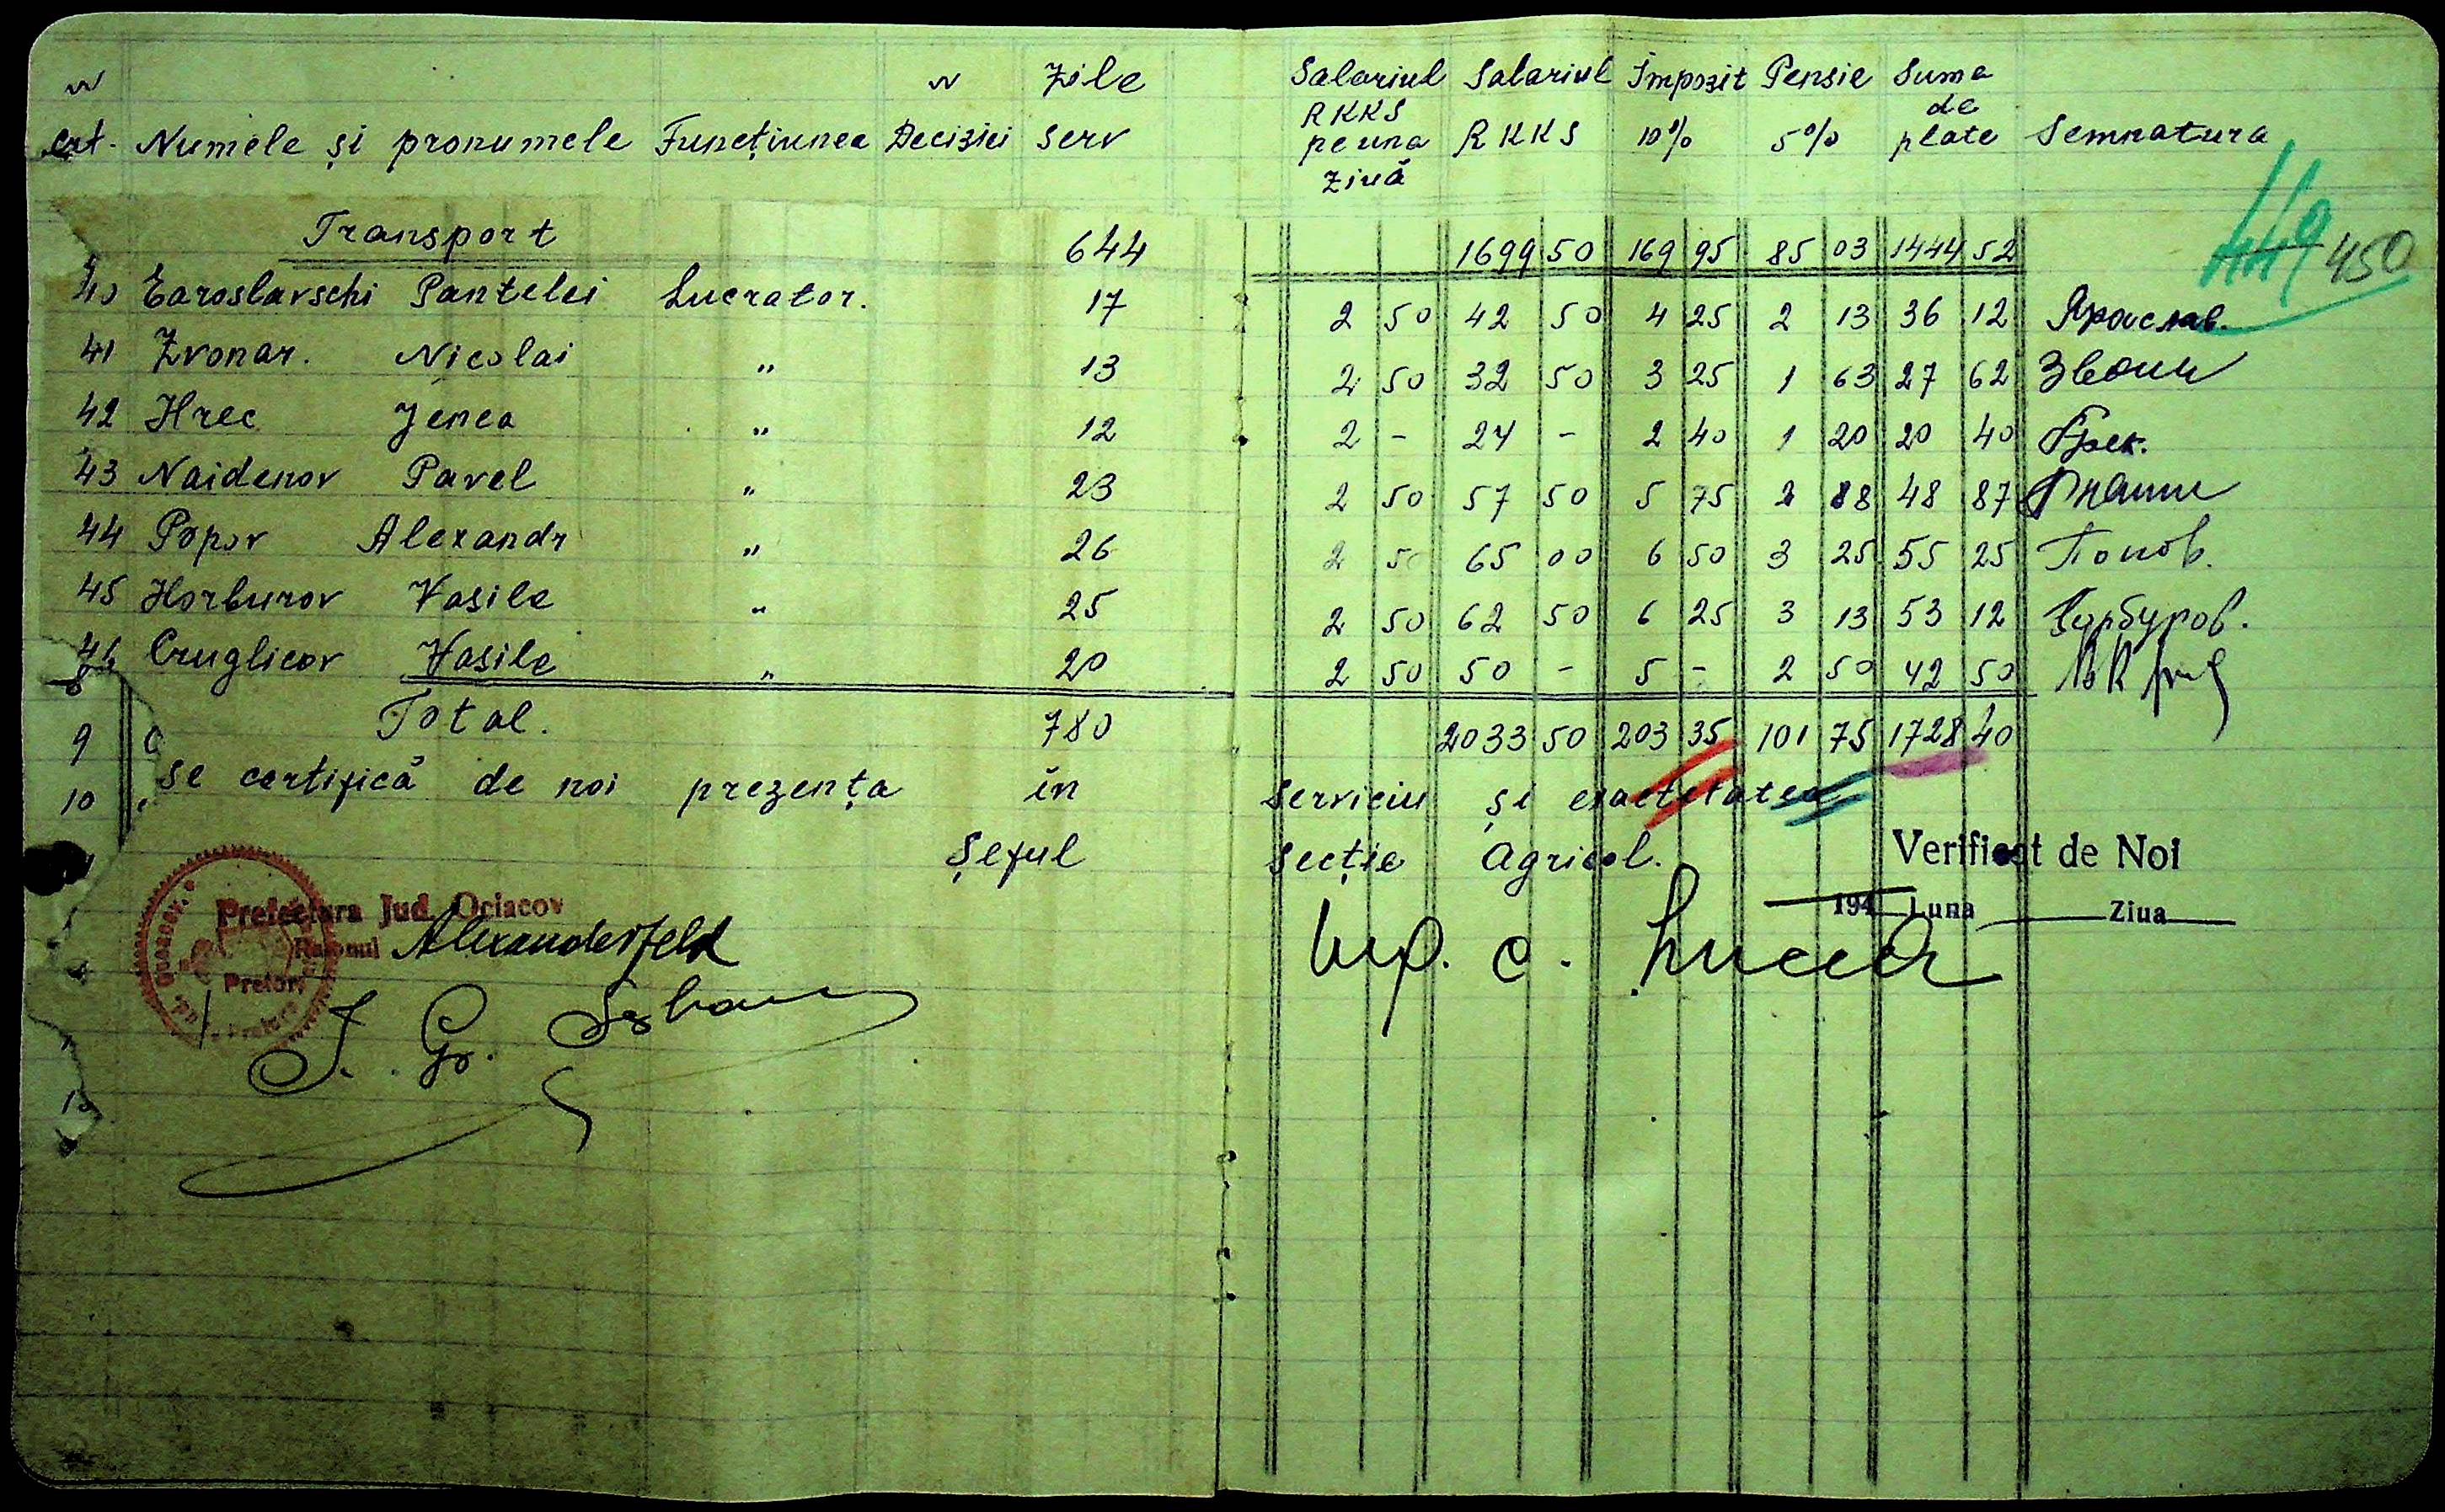 N N Zile Salariul Salariul Impozit Pensie Suma
RKKS de
crt. Numele și pronumele Funcțiunea Deciziei serv pe una RKKS 10% 5% plate Semnatura
ziuă
Transport 644 1699 50 169 95 85 03 1444 52 450
40 Earoslavschi Pantelei Lucrator. 17 2 50 42 50 4 25 2 13 36 12 Ярослав.
41 Zvonar. Nicolai " 13 2 50 32 50 3 25 1 63 27 62
42 Hrec Jenea " 12 2 - 24 - 2 40 1 20 20 40 Грек.
43 Naidenov Pavel " 23 2 50 57 50 5 75 2 88 48 87
44 Popov Alexandr " 26 2 50 65 00 6 50 3 25 55 25 Попов.
45 Horburov Vasile " 25 2 50 62 50 6 25 3 13 53 12 Гурбуров.
46 Cruglicov Vasile " 20 2 50 50 - 5 - 2 50 42 50
8
Total. 780 2033 50 203 35 101 75 1728 40
9
se certifică de noi prezența în serviciu și exactitatea
10
Șeful secție agricol.
Verificat de Noi
194 Luna Ziua
Prefectura Jud. Ociacov
Raionul Alexanderfeld
Pretor